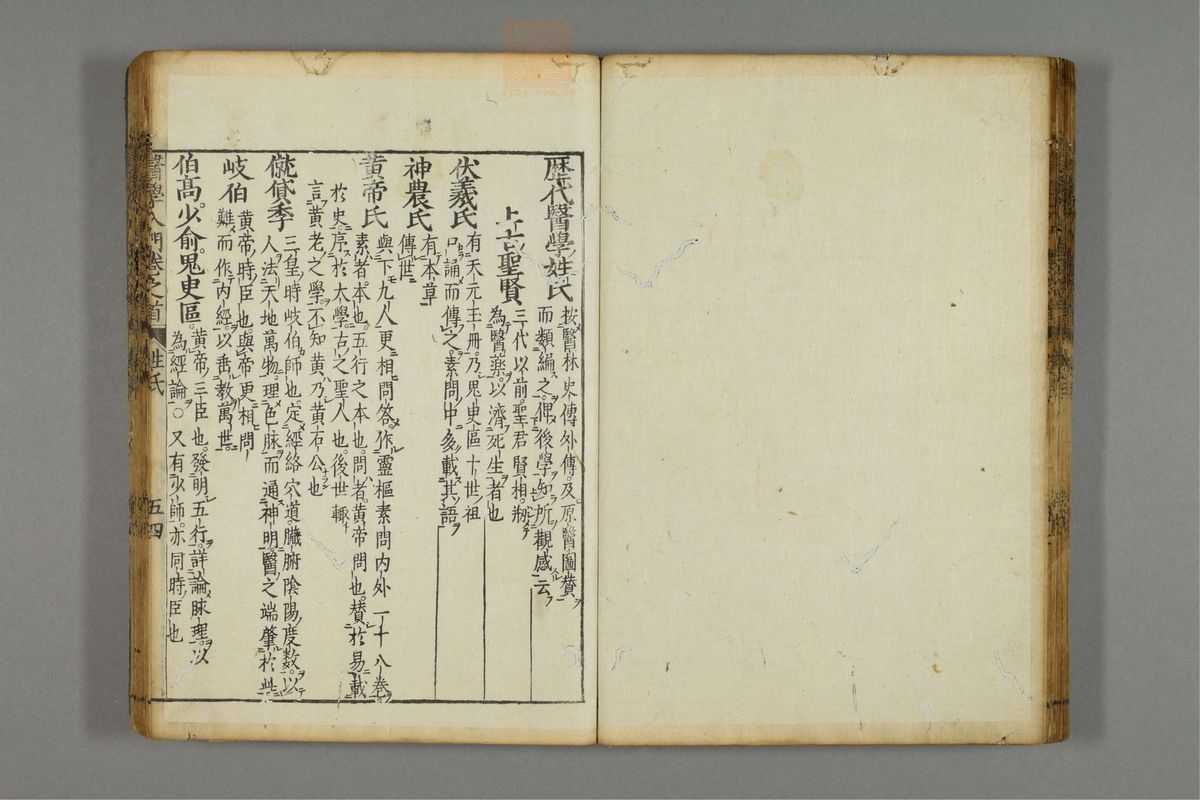 歷代醫學姓氏
按醫林史傳外傳及原醫圖贊
而類編之俾後學知所觀感云
上古聖賢
三代以前聖君賢相
為醫藥以濟死生者也
伏羲氏
有天元玉冊乃鬼臾區十世祖
口誦而傳之素問中多載其語
神農氏
有本草
傳世
黃帝氏
與下九人更相問答作靈樞素問內外一十八卷
素者本也五行之本也問者黃帝問也贊於易載
於史序於太學古之聖人也後世輒
言黃老之學不知黃乃黃石公也
僦貸季
三皇時岐伯師也定經絡穴道臟腑陰陽度數以
人法天地萬物理色脉而通神明醫之端肇於此
岐伯
黃帝時臣也與帝更相問
難而作內經以垂教萬世
伯高少俞鬼臾區
黃帝三臣也發明五行詳論脉理以
為經論○又有少師亦同時臣也
醫學入門卷之首 姓氏 五四